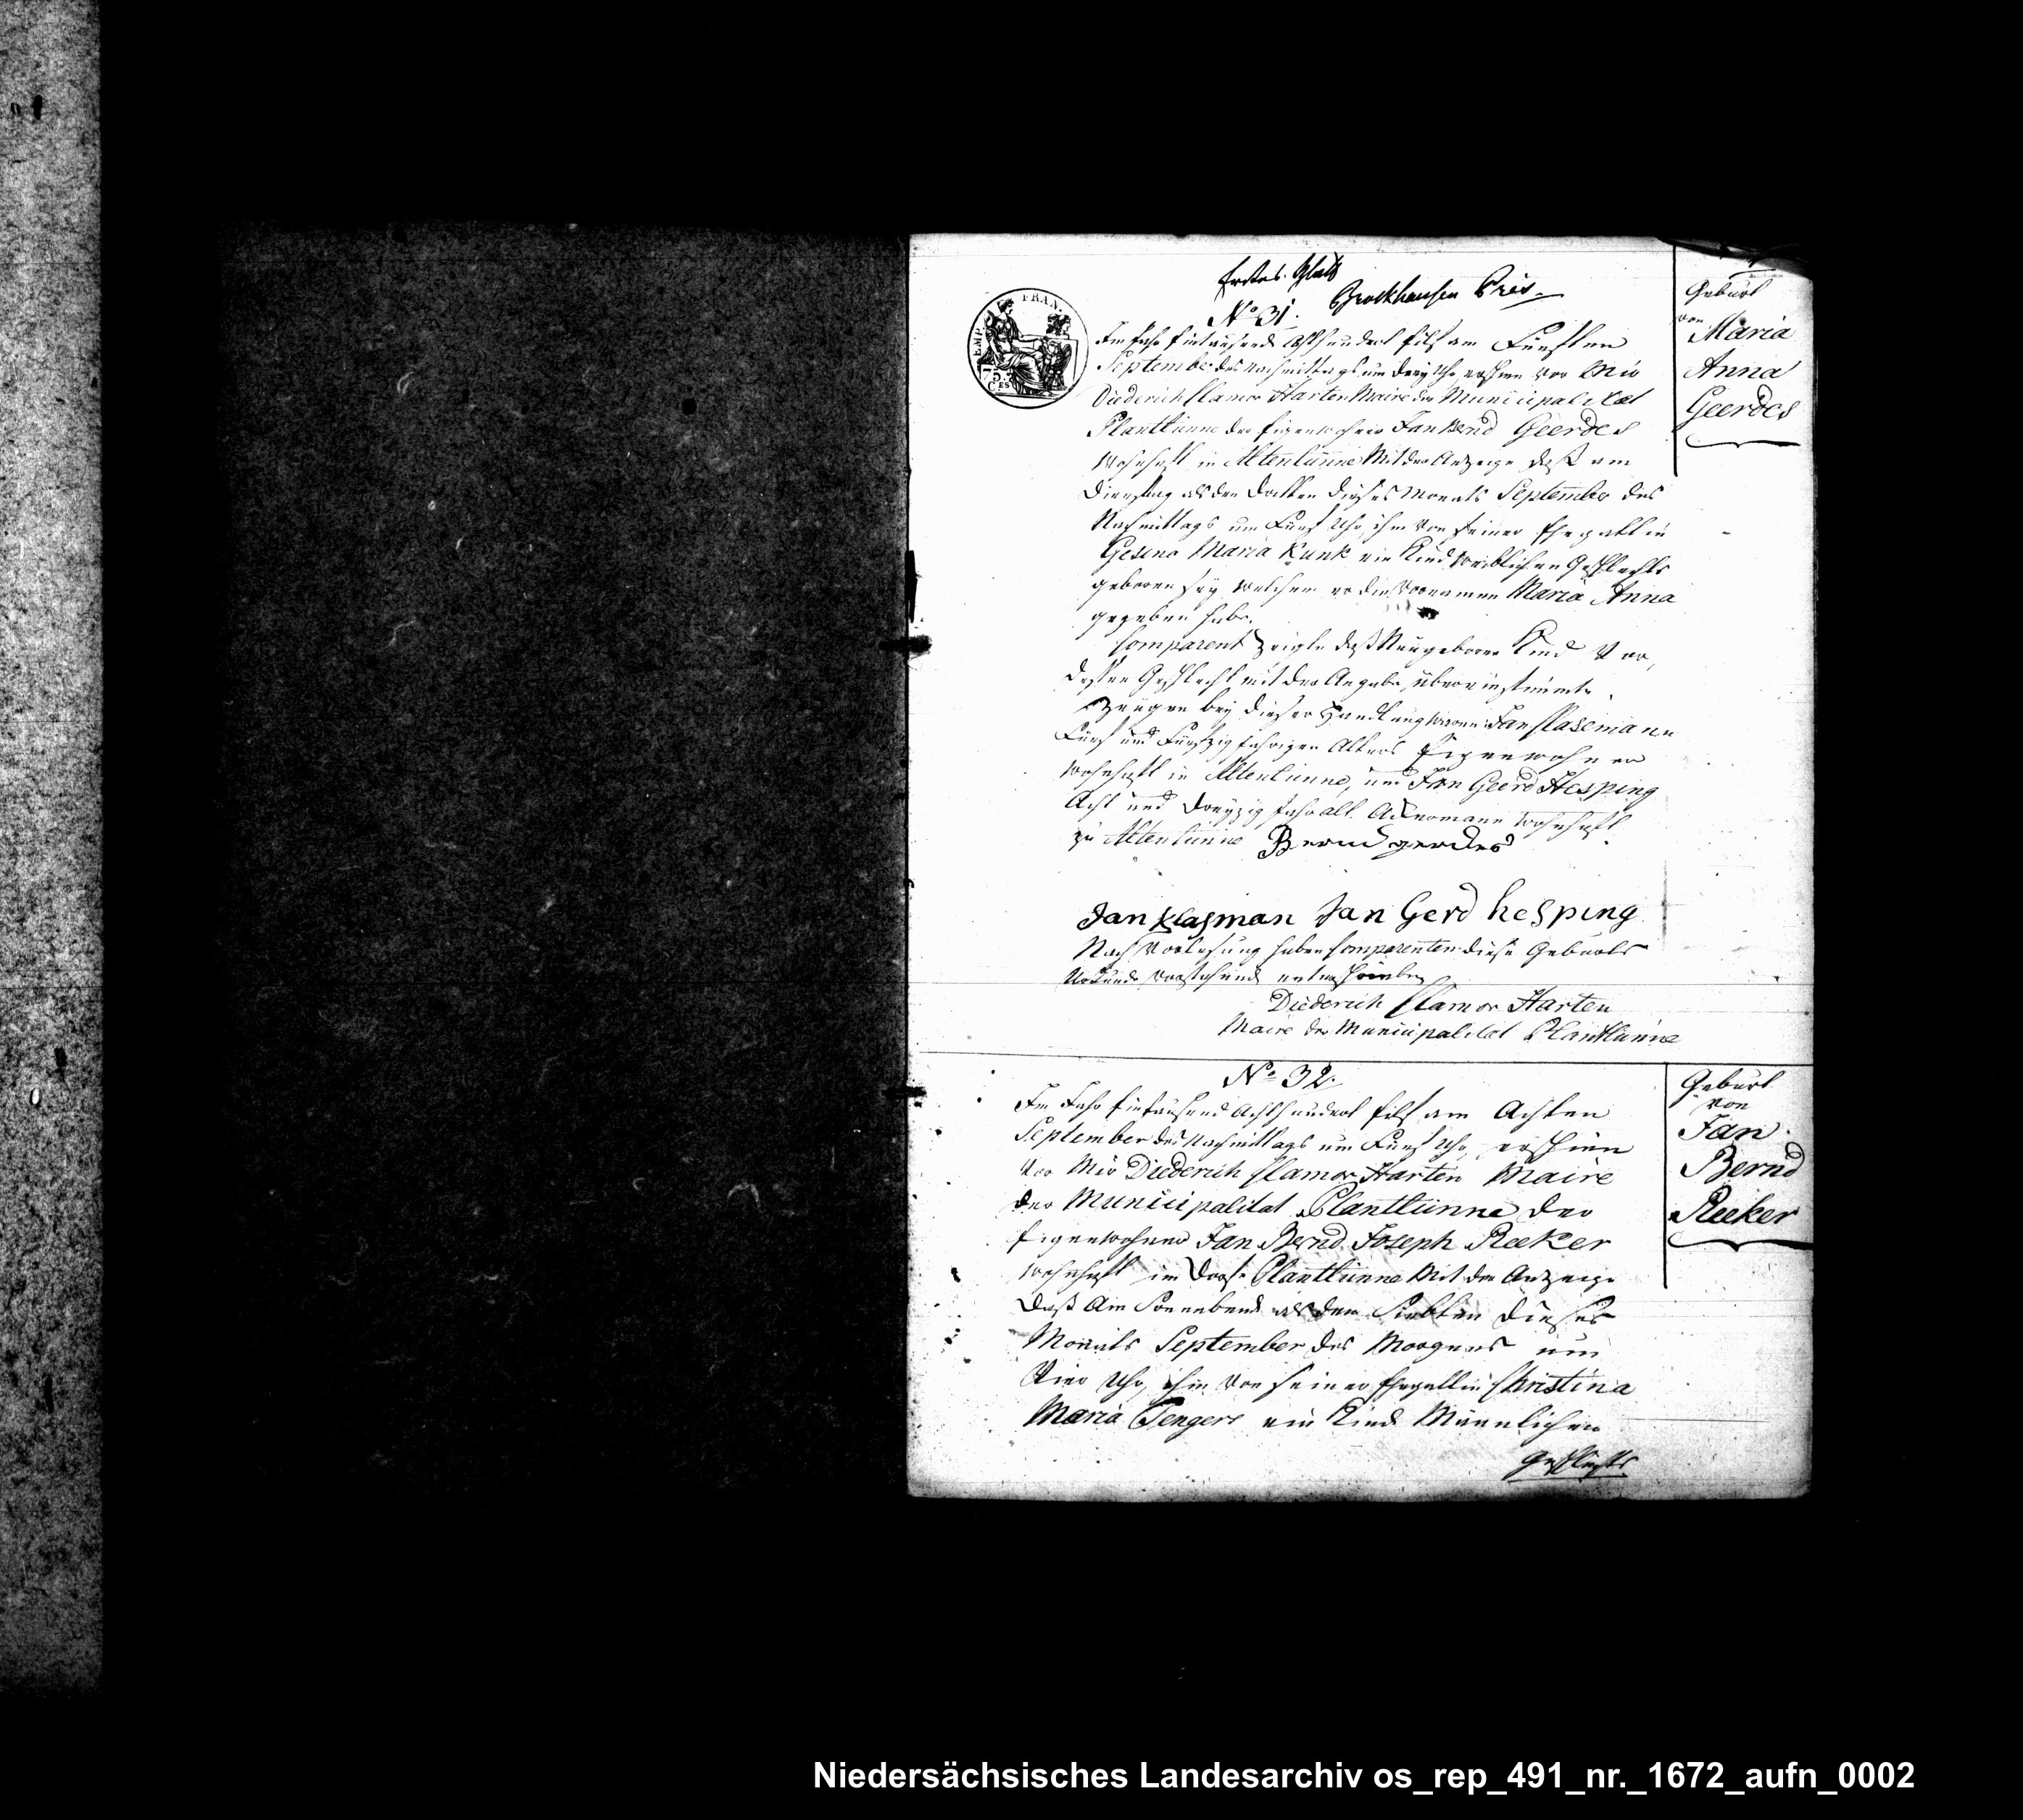 Erstes Blatt
Brockhausen Pres.
No 31.
EMP. FRAN.
75. C.ES
Im Jahr Eintausend Achthundert Eilf am Fünften
September des Nachmittags um drey Uhr, erschien vor Mir
Diederich Clamor Harten Maire der Municipalitat
Plantlünne der Eigenwohner Jan Bernd Geerdes
Wohnhaft in Altenlünne Mit der Anzeige daß am
Dienstag als den Dritten dieses Monats September des
Nachmittags um Fünf Uhr, ihm von seiner Ehegattin
Gesina Maria Kunk ein Kind Weiblichen Geschlechts
geboren sey, welchem er die Vornamen Maria Anna
gegeben habe.
Comparent zeigte daß Neugeborne Kind Vor,
dessen Geschlecht mit der Angabe übereinstimmte.
Zeugen bey dieser Handlung waren: Jan Clasemann
Fünf und Fünfzig jahrigen Alters Eigenwohner
Wohnhaft in Altenlünne, und Jan Geerd Hesping
Acht und Dreyzig Jahr alt Ackermann Wohnhaft
zu Altenlünne Bernd gerdes
Jan Klasman Jan Gerd hesping
Nach Vorlesung haben Comparenten diese Geburts
Urkunde vorstehend unterschrieben
Diederich Clamor Harten
Maire der Municipalitat Plantlünne
Geburt
von
Maria
Anna
Geerdes
No 32.
Im Jahr Eintausend Achthundert Eilf am Achten
September des Nachmittags um Fünf Uhr, erschien
Vor Mir Diederich Clamor Harten Maire
der Municipalitat Plantlünne der
Eigenwohner Jan Bernd Joseph Reeker
Wohnhaft im Dorfe Plantlünne Mit der Anzeige
Daß Am Sonnabend als den Siebten dieses
Monats September des Morgens um
Vier Uhr, ihm von seiner Ehegattin Christina
Maria Tengers ein Kind Männlichen
Geschlechts
Geburt
von
Jan
Bernd
Reeker
Niedersächsisches Landesarchiv os_rep_491_nr._1672_aufn_0002